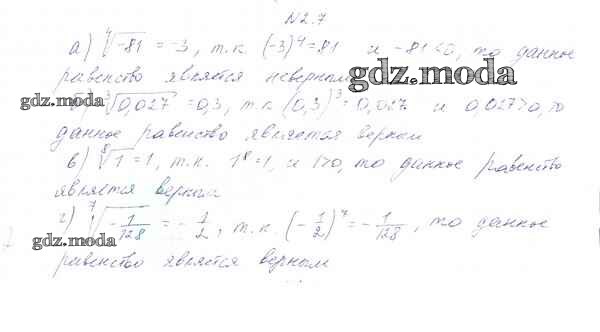 N2.7
а) ⁴√-81 = -3, т.к. (-3)⁴=81 и -81<0, то данное
равенство является неверным
gdz.moda
gdz.moda
б) ³√0,027 = 0,3, т.к (0,3)³=0,027 и 0,027>0, то
данное равенство является верным
в) ⁸√1 = 1, т.к. 1⁸=1, и 1>0, то данное равенство
является верным
г) ⁷√-1/128 = -1/2, т.к. (-1/2)⁷ = -1/128, то данное
gdz.moda
gdz.moda
равенство является верным